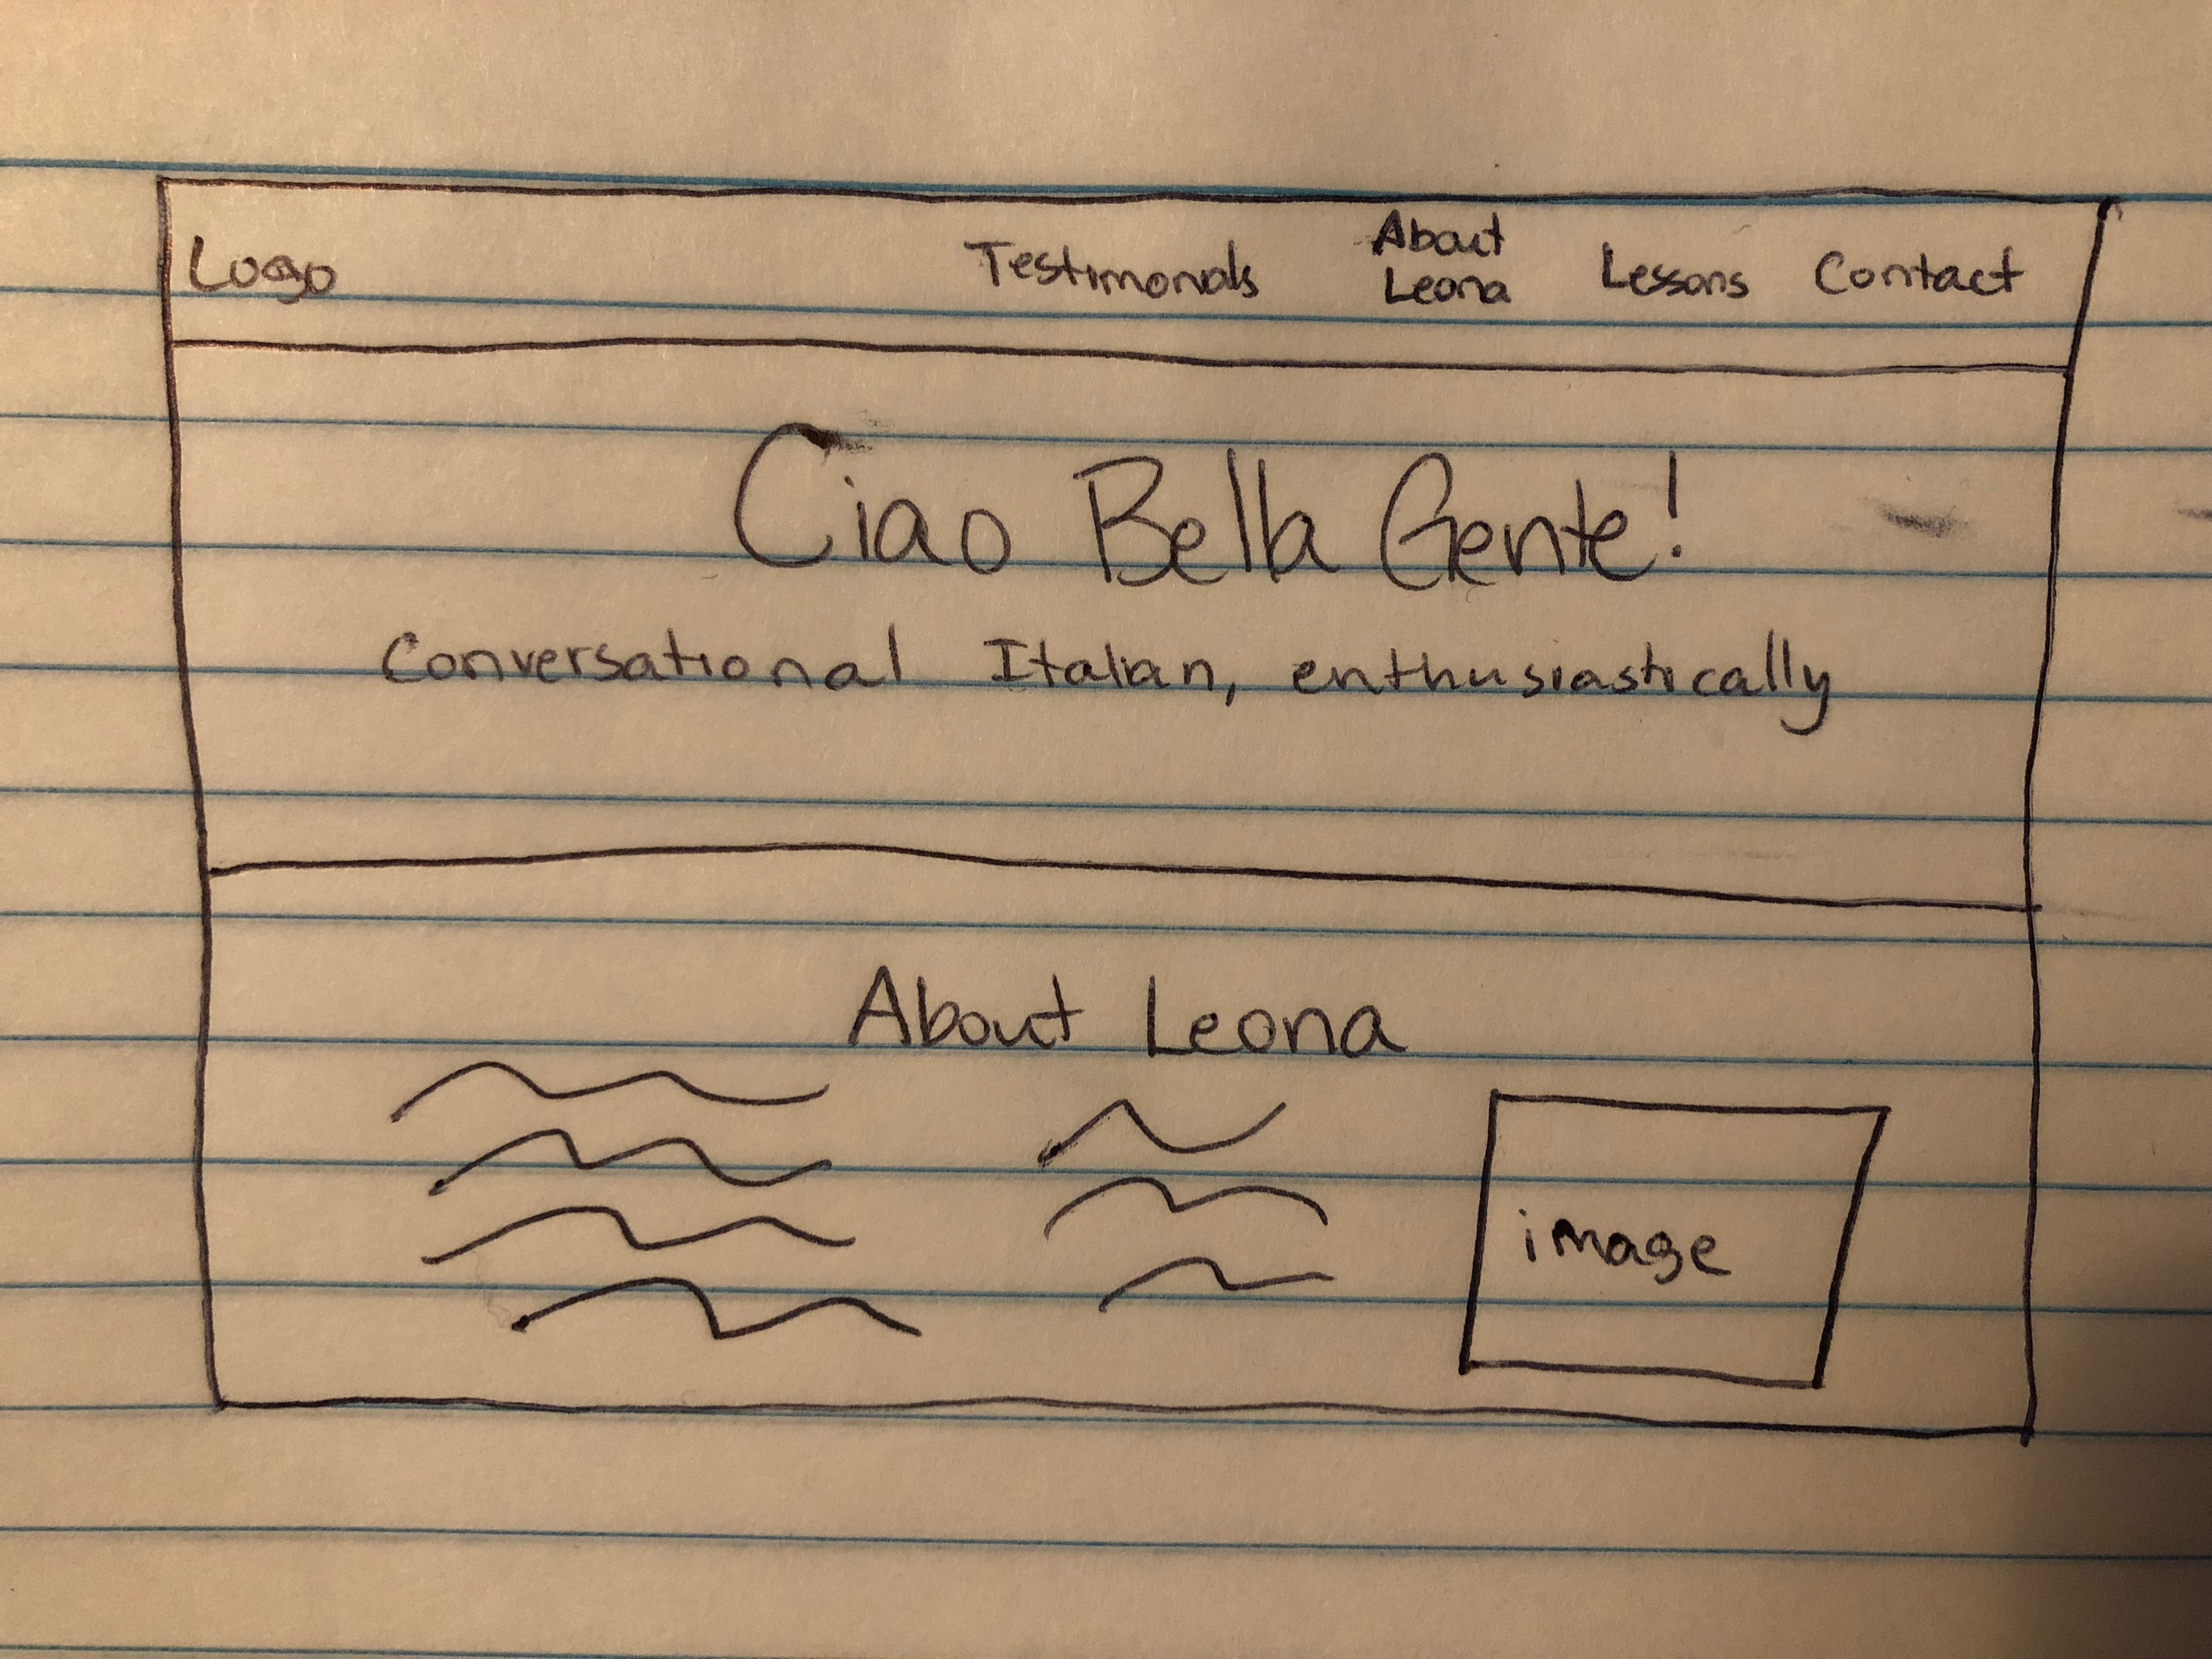 Logo
Testimonals
About
Leona
Lessons
Contact
Ciao Bella Gente!
Conversational Italian, enthusiastically
About Leona
image